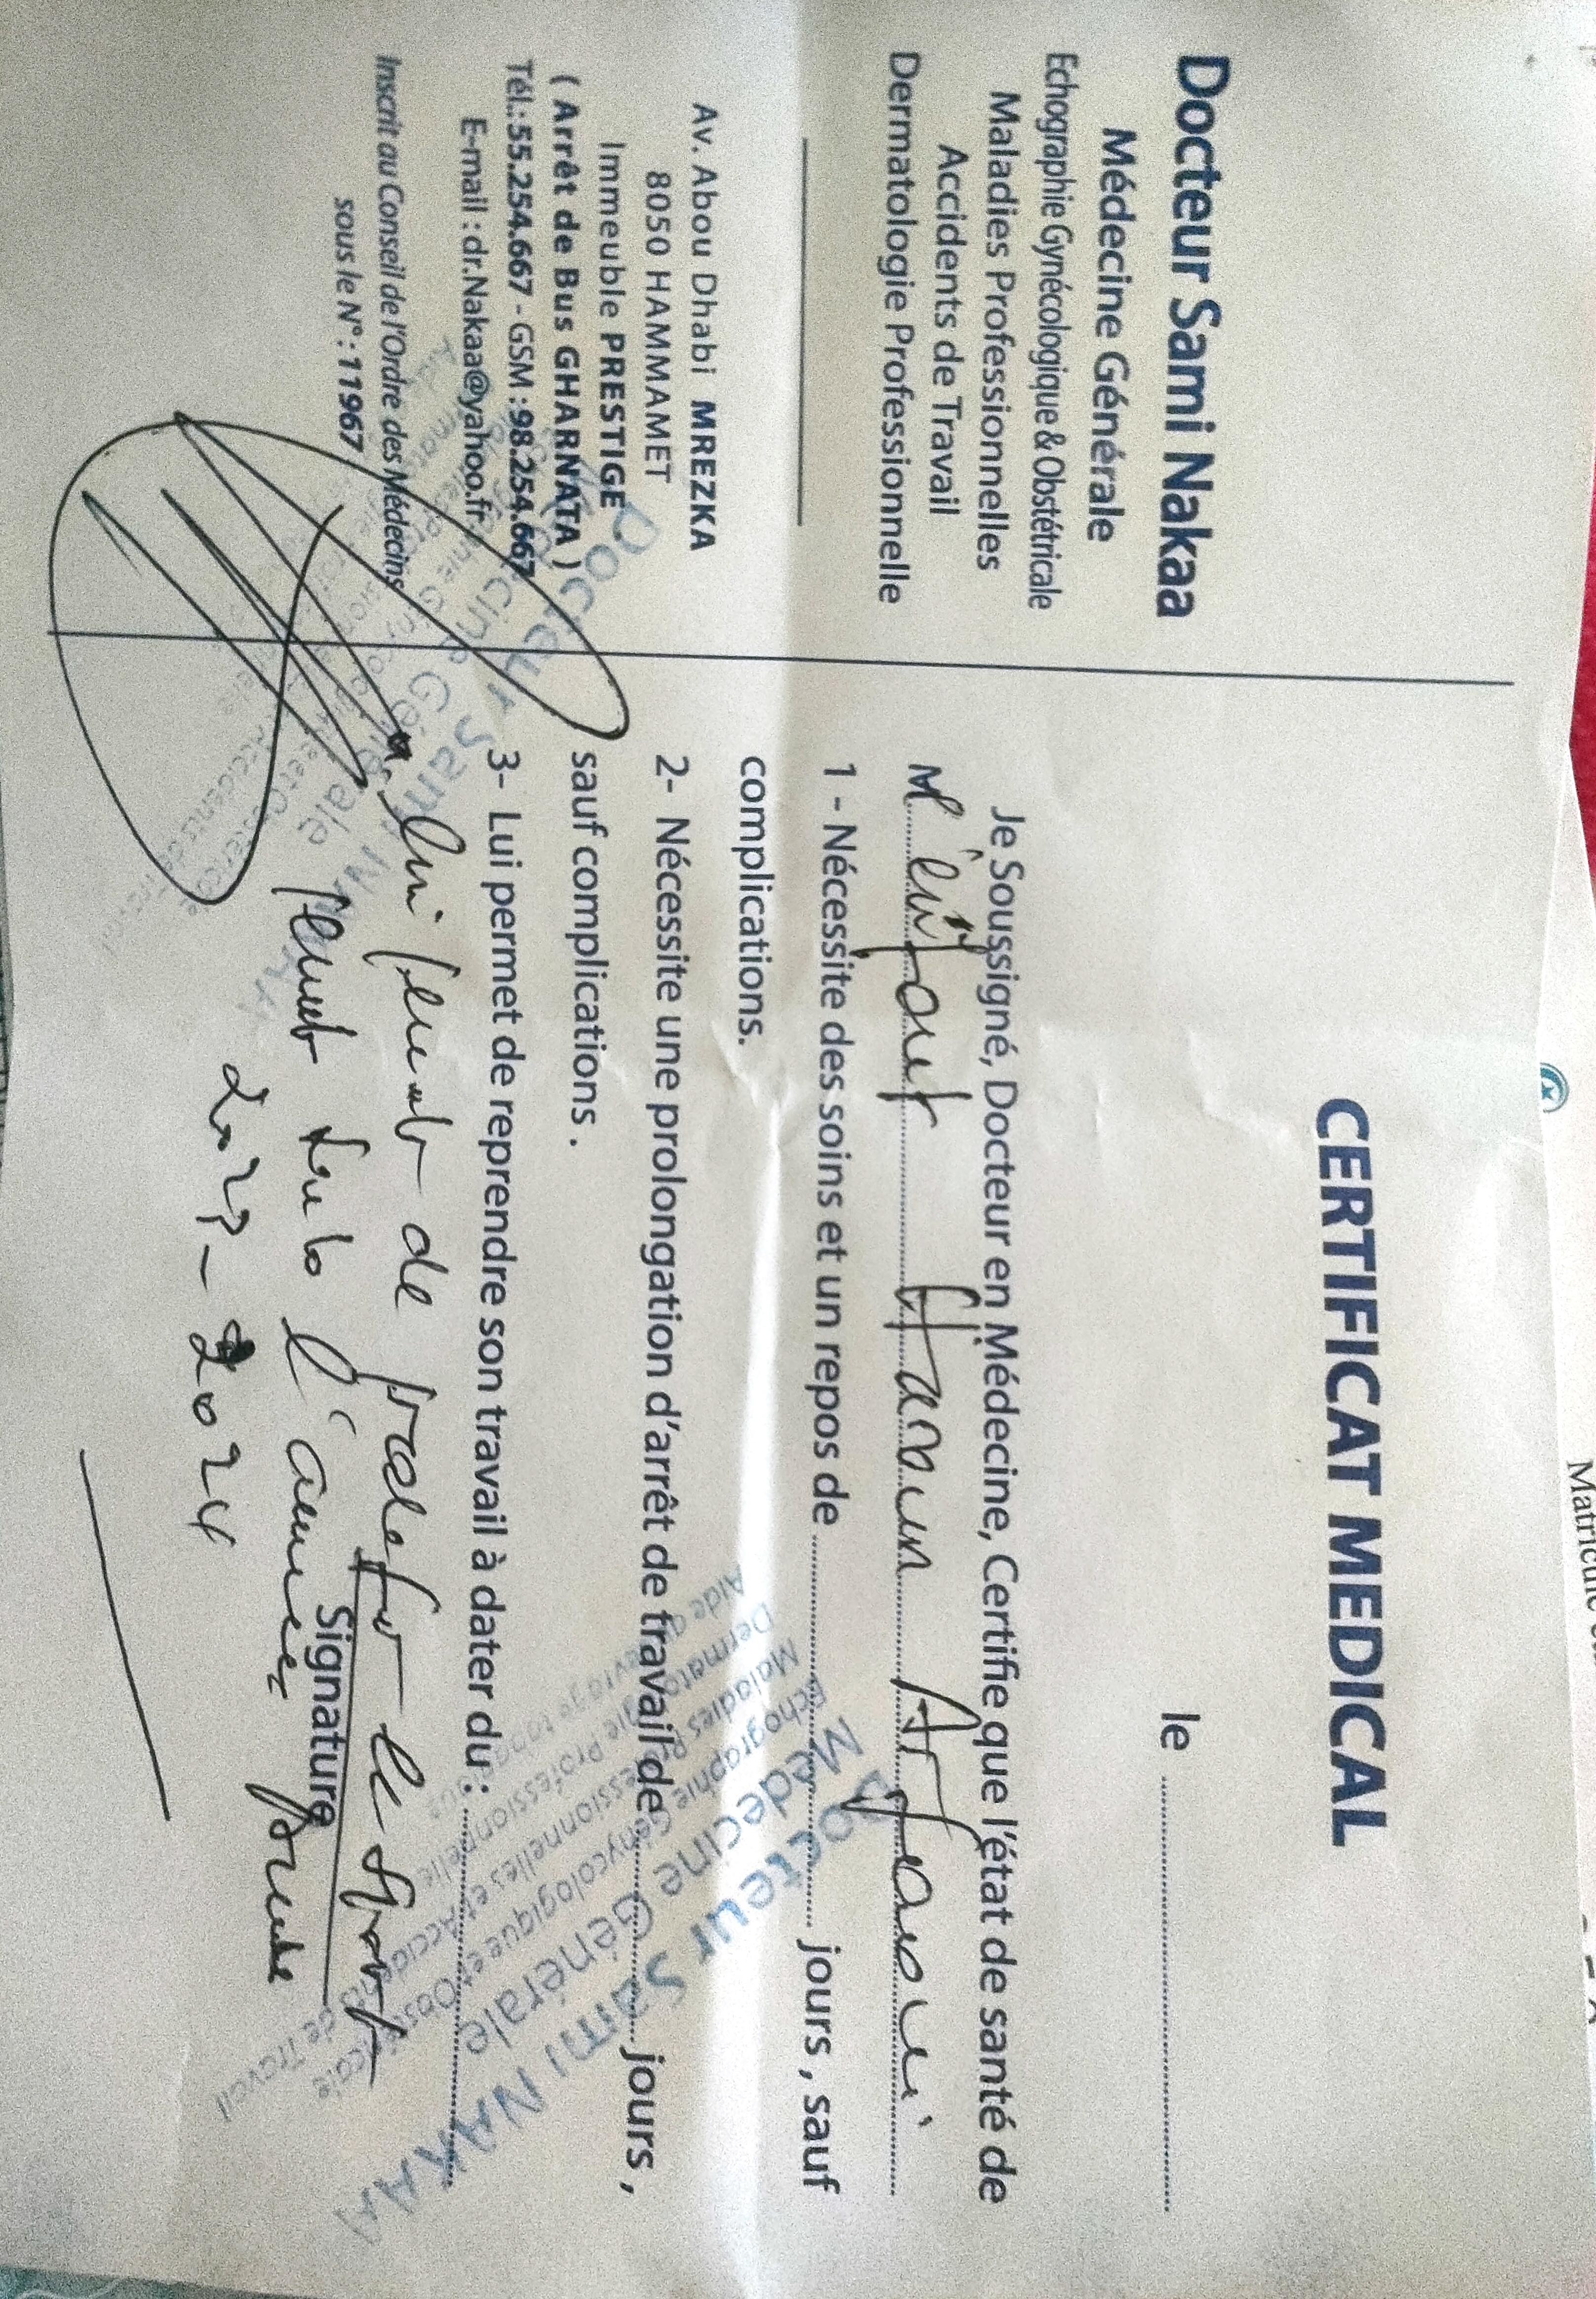 Docteur Sami Nakaa
Médecine Générale
Echographie Gynécologique & Obstétricale
Maladies Professionnelles
Accidents de Travail
Dermatologie Professionnelle
Av. Abou Dhabi MREZKA
8050 HAMMAMET
Immeuble PRESTIGE
( Arrêt de Bus GHARNATA )
Tél.: 55.254.667 - GSM : 98.254.667
E-mail : dr.Nakaa@yahoo.fr
Inscrit au Conseil de l'Ordre des Médecins
sous le N° : 11967
CERTIFICAT MEDICAL
le
Je Soussigné, Docteur en Médecine, Certifie que l'état de santé de
l'enfant
1 - Nécessite des soins et un repos de jours , sauf
complications.
2- Nécessite une prolongation d'arrêt de travail de jours ,
sauf complications .
3- Lui permet de reprendre son travail à dater du :
lui permet de le sport
Signature
l'année
2023 - 2024
Docteur Sami NAKAA
Médecine Générale
Echographie Génycologique et Obstétricale
Maladies Professionnelles et Accidents de Travail
Dermatologie Professionnelle
Docteur Sami NAKAA
Médecine Générale
Matricule